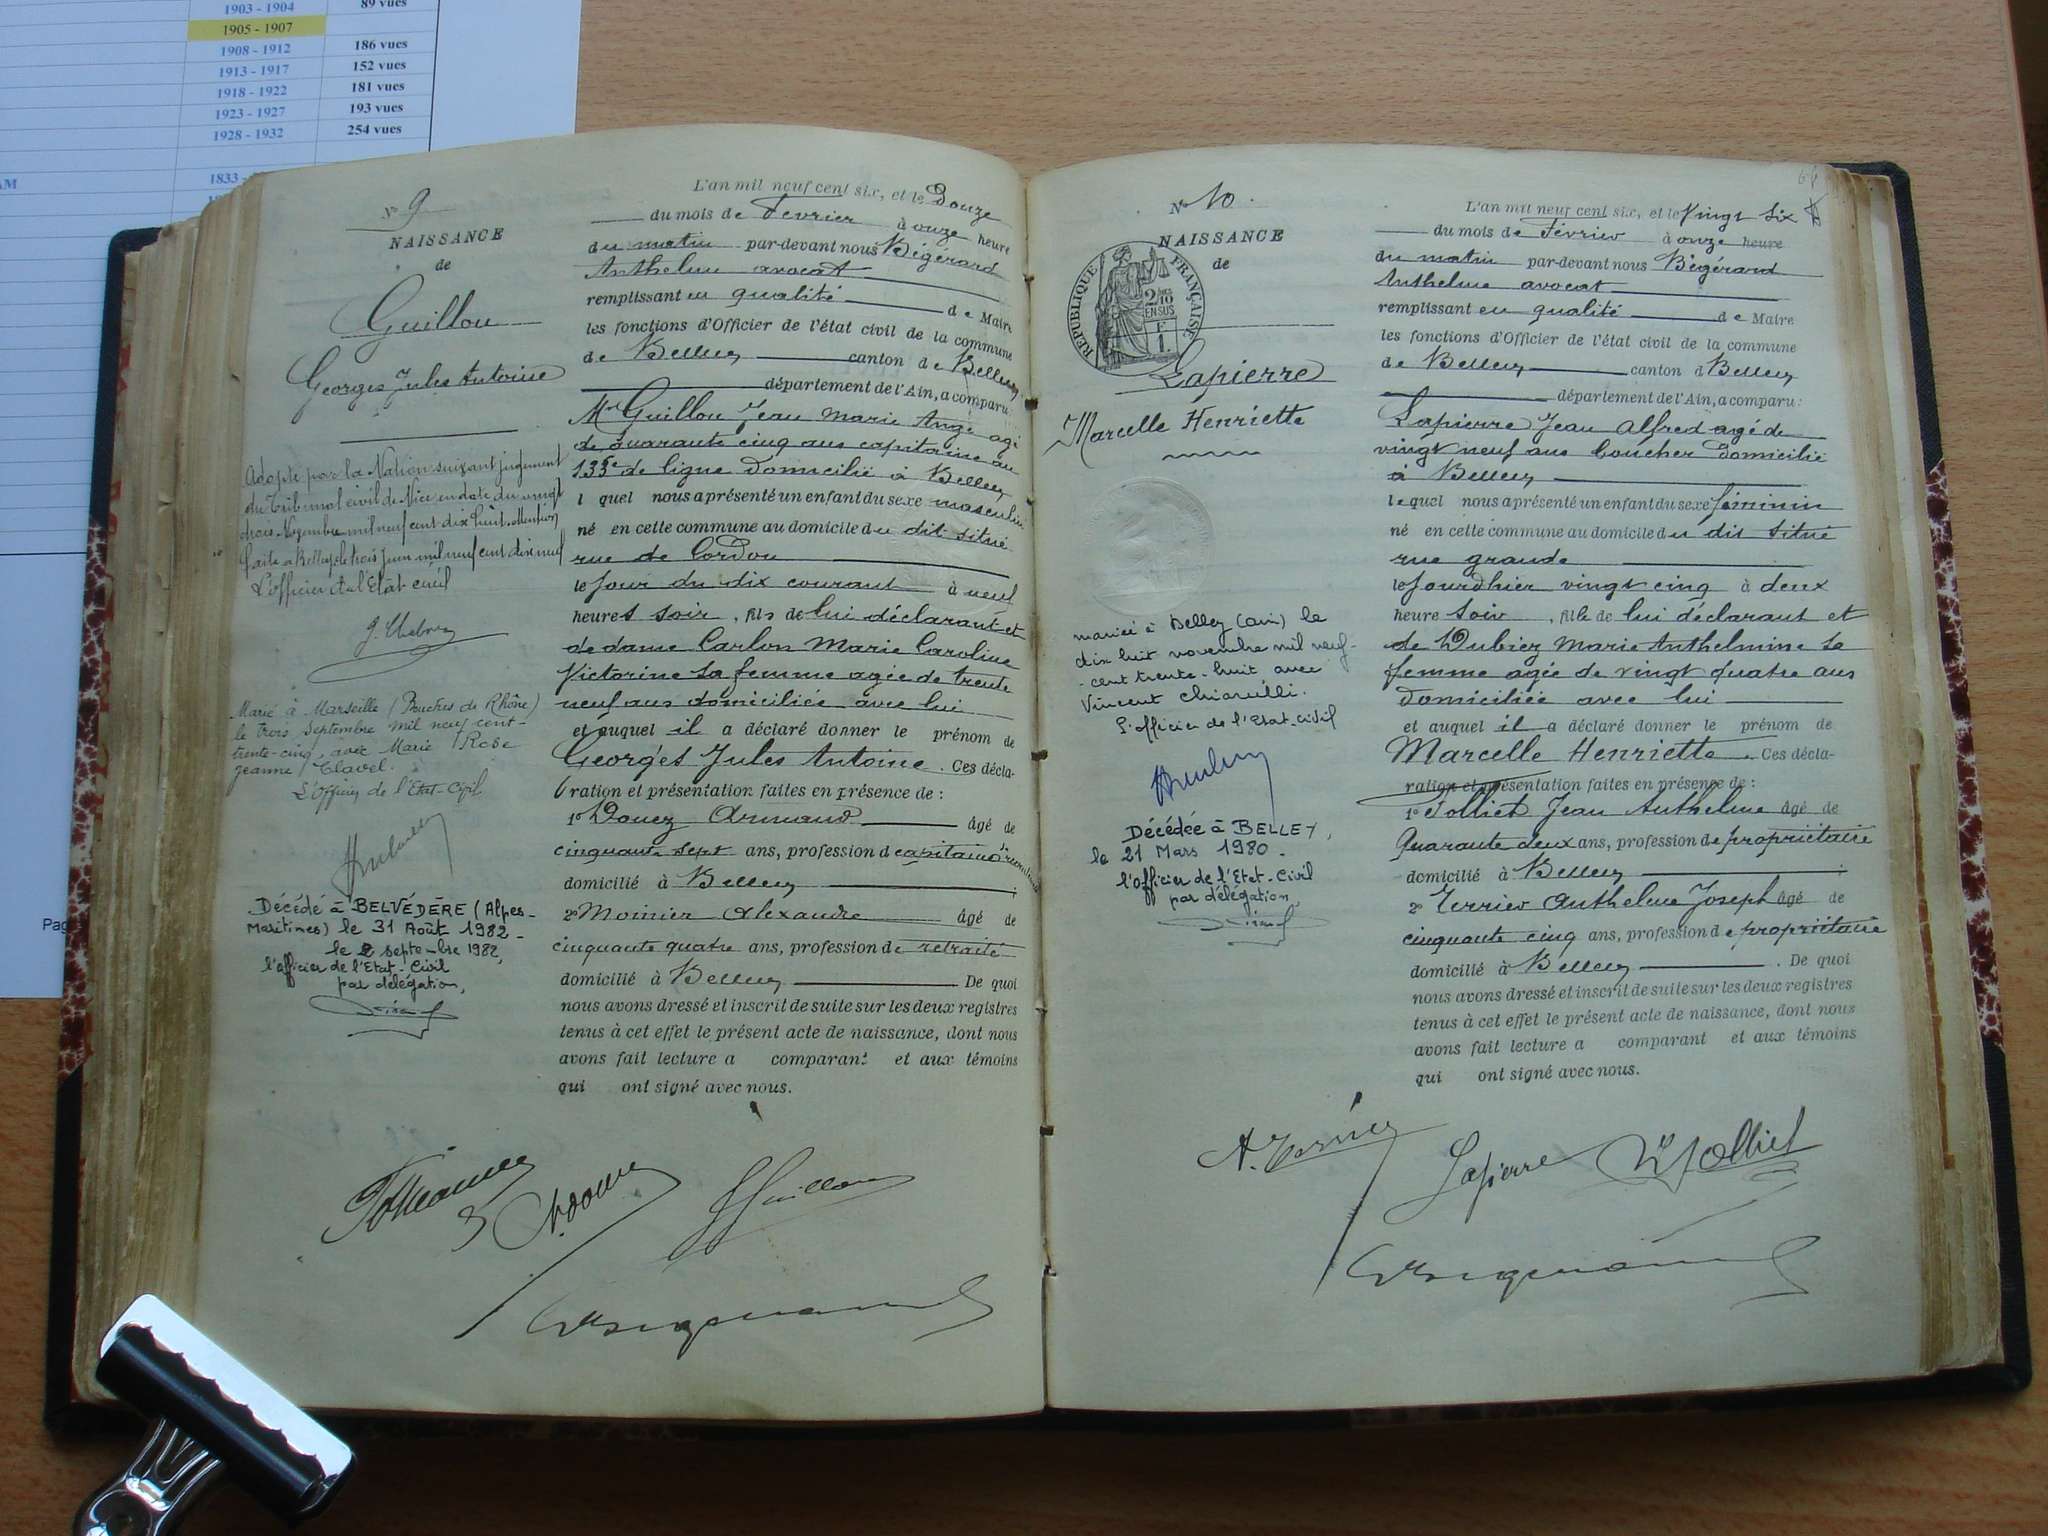 1903 - 1904 89 vues
1905 - 1907
1908 - 1912 186 vues
1913 - 1917 152 vues
1918 - 1922 181 vues
1923 - 1927 193 vues
1928 - 1932 254 vues
AM 1833 -
Pag
N° 9
NAISSANCE
de
Guillou
Georges Jules Antoine
Adopté par la Nation suivant jugement
du Tribunal civil de Nice en date du vingt
trois Novembre mil neuf cent dix huit. Mention
faite à Belley le trois juin mil neuf cent dix neuf
L'officier de l'Etat civil
Marié à Marseille (Bouches du Rhône)
le trois Septembre mil neuf cent-
trente-cinq, avec Marie Rose
Jeanne Clavel.
L'Officier de l'Etat-Civil
Décédé à BELVÉDÈRE (Alpes-
Maritimes) le 31 Août 1982-
le 2 septembre 1982,
l'officier de l'Etat-Civil
par délégation,
L'an mil neuf cent six, et le Douze
du mois de Février à onze heure
du matin par-devant nous Bégérard
Anthelme avocat
remplissant en qualité de Maire
les fonctions d'Officier de l'état civil de la commune
de Belley canton de Belley
département de l'Ain, a comparu:
Mr Guillou Jean Marie Ange agé
de quarante cinq ans capitaine au
133e de ligne domicilié à Belley
l quel nous a présenté un enfant du sexe masculin
né en cette commune au domicile du dit situé
rue de Cordon
le jour du dix courant à neuf
heures soir, fils de lui déclarant et
de dame Carlon Marie Caroline
Victorine sa femme agée de trente
neuf ans domiciliée avec lui
et auquel il a déclaré donner le prénom de
Georges Jules Antoine. Ces décla-
ration et présentation faites en présence de :
1° Douez Armand âgé de
cinquante sept ans, profession de capitaine
domicilié à Belley ;
2° Moinier Alexandre âgé de
cinquante quatre ans, profession de retraité
domicilié à Belley De quoi
nous avons dressé et inscrit de suite sur les deux registres
tenus à cet effet le présent acte de naissance, dont nous
avons fait lecture a comparant et aux témoins
qui ont signé avec nous.
Guillou
N° 10.
NAISSANCE
de
RÉPUBLIQUE FRANÇAISE
2/10
EN SUS
F
1.
Lapierre
Marcelle Henriette
mariée à Belley (ain) le
dix huit novembre mil neuf-
-cent trente-huit avec
Vincent Chiarelli.
L'officier de l'Etat-civil
Décédée à BELLEY,
le 21 Mars 1980-
l'officier de l'Etat-Civil
par délégation,
64
L'an mil neuf cent six, et le Vingt six
du mois de Février à onze heure
du matin par-devant nous Bégérard
Anthelme avocat
remplissant en qualité de Maire
les fonctions d'Officier de l'état civil de la commune
de Belley canton d Belley
département de l'Ain, a comparu:
Lapierre Jean Alfred agé de
vingt neuf ans boucher domicilié
à Belley
le quel nous a présenté un enfant du sexe féminin
né en cette commune au domicile du dit situé
rue grande
le jour d'hier vingt cinq à deux
heure soir, fille de lui déclarant et
de Dubiez Marie Anthelmine sa
femme agée de vingt quatre ans
domiciliée avec lui
et auquel il a déclaré donner le prénom de
Marcelle Henriette. Ces décla-
ration et présentation faites en présence de :
1° Jolliet Jean Anthelme âgé de
Quarante deux ans, profession de propriétaire
domicilié à Belley ;
2° Terrier Anthelme Joseph âgé de
cinquante cinq ans, profession de propriétaire
domicilié à Belley. De quoi
nous avons dressé et inscrit de suite sur les deux registres
tenus à cet effet le présent acte de naissance, dont nous
avons fait lecture a comparant et aux témoins
qui ont signé avec nous.
Lapierre Jolliet